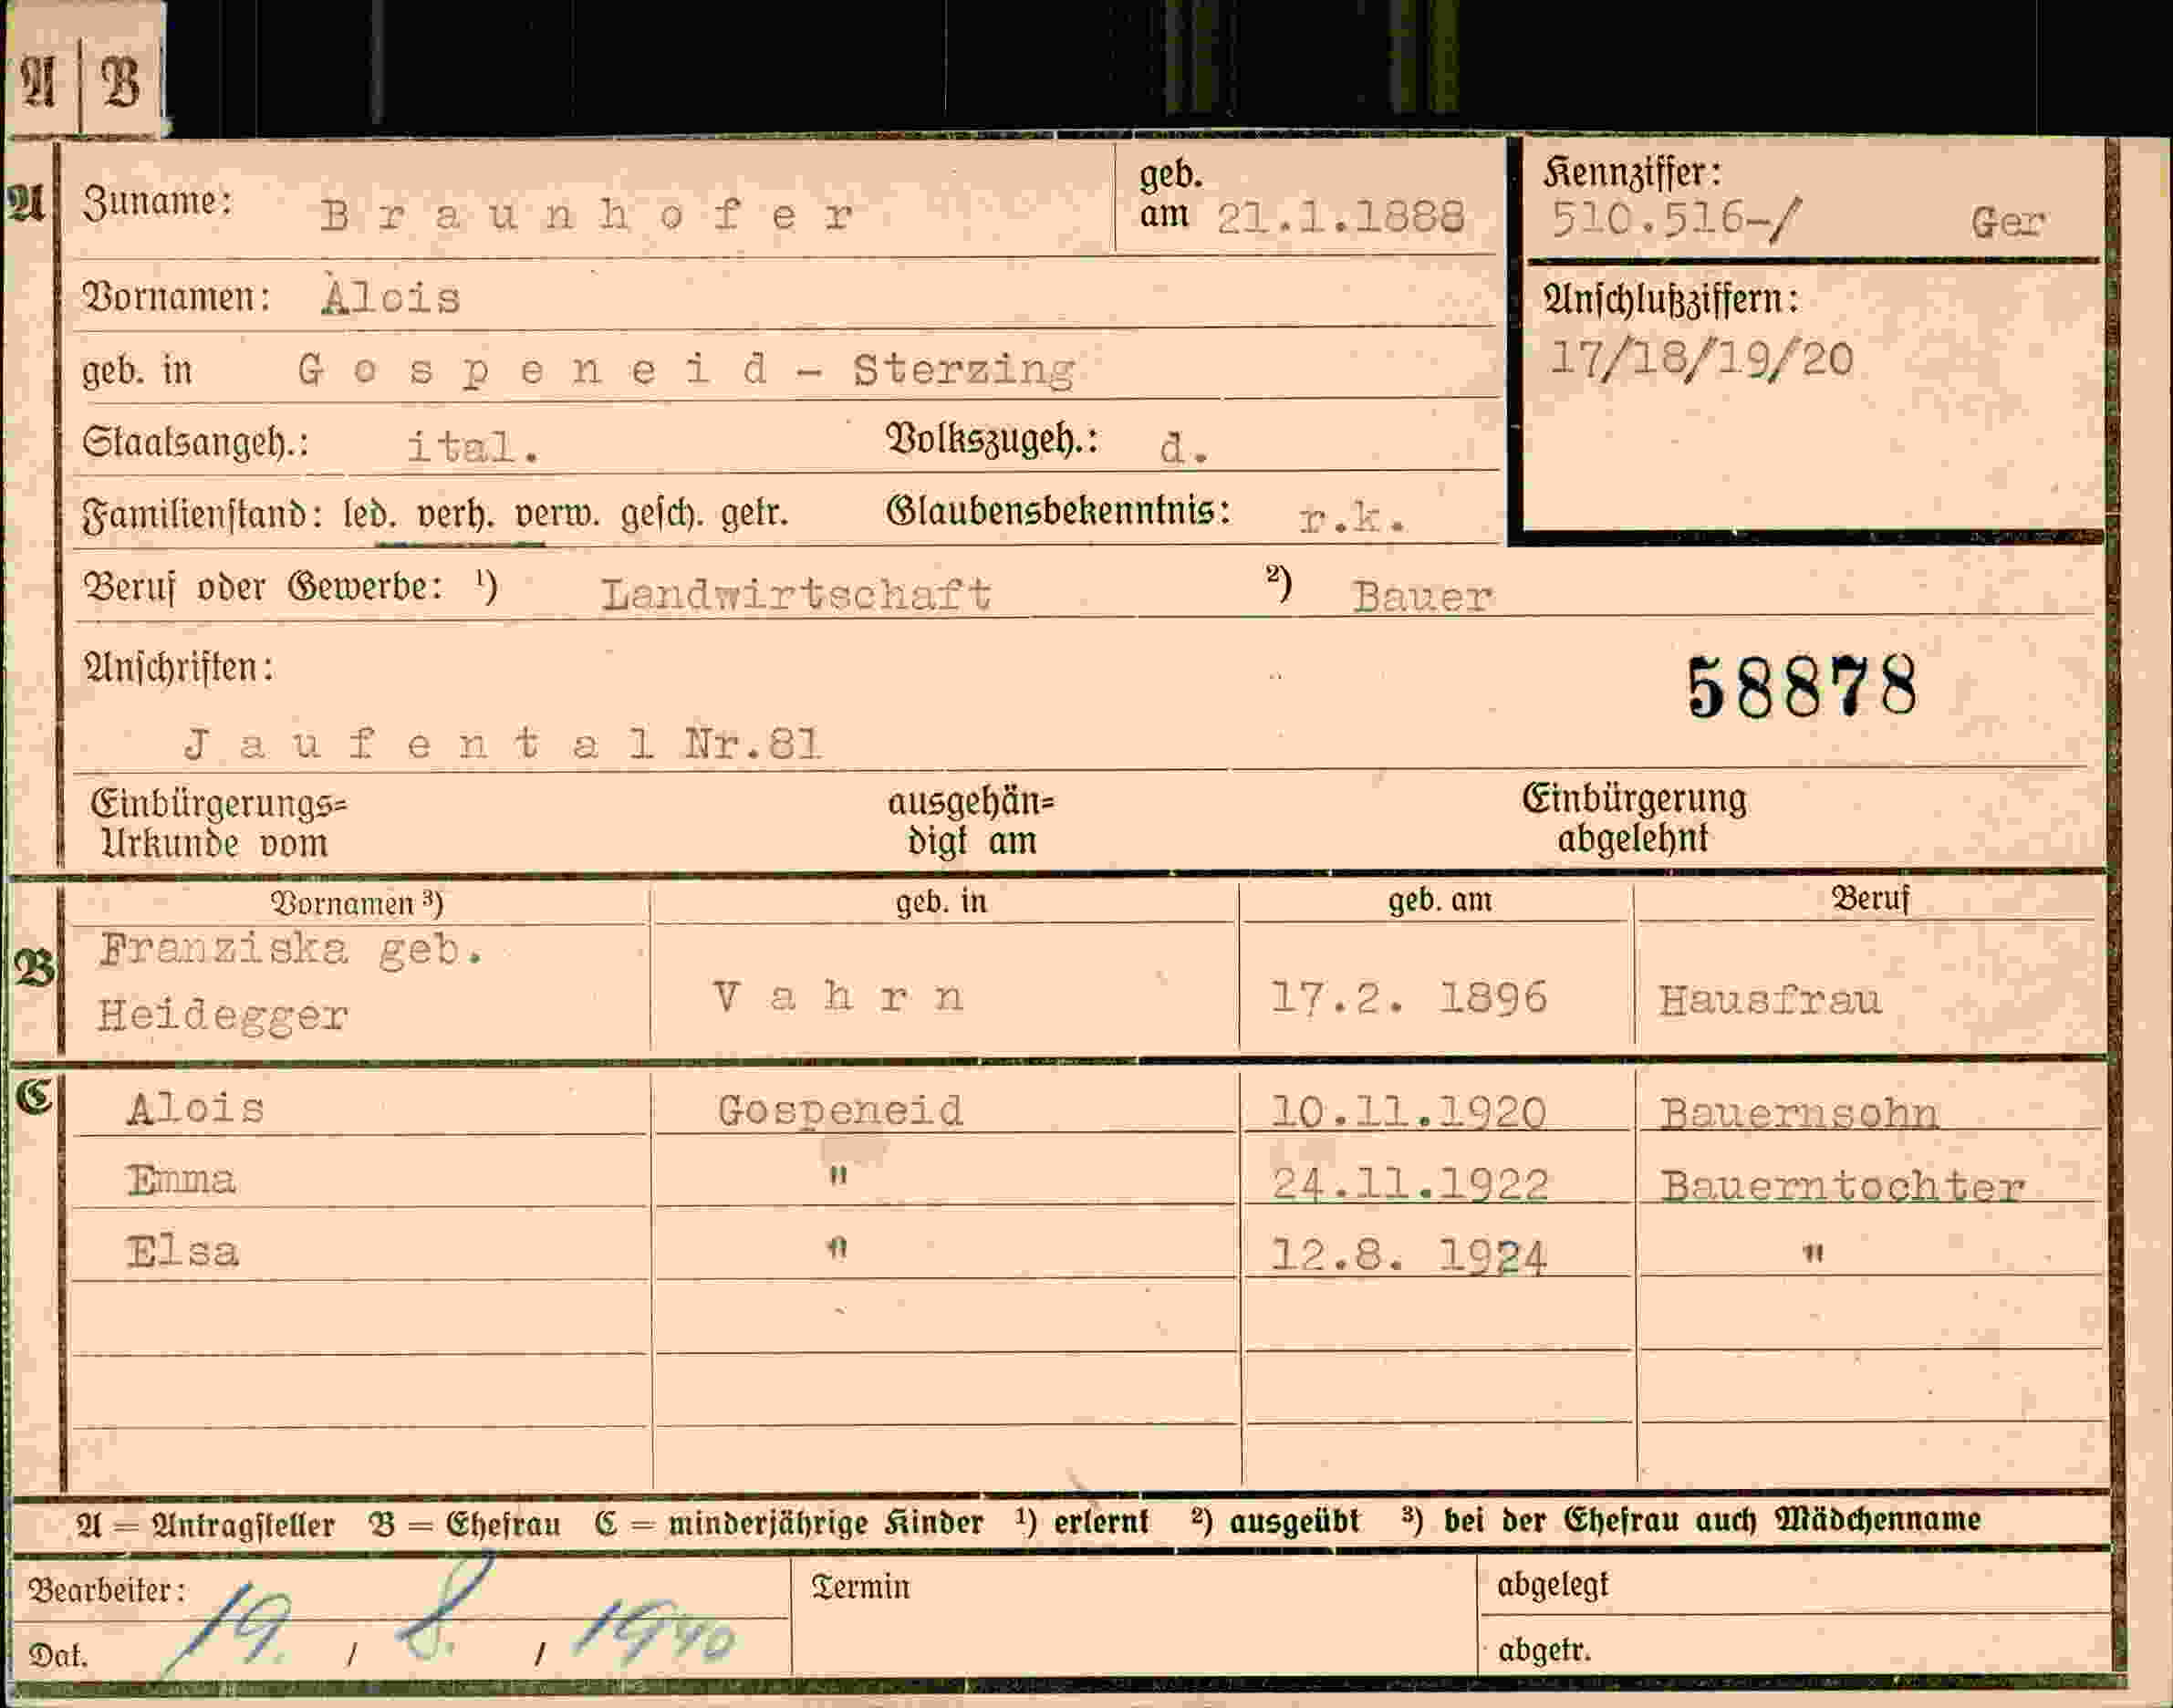 A | B
A Zuname: Braunhofer geb. am 21.1.1888 Kennziffer: 510.516-/ Ger
Vornamen: Alois Anschlußziffern:
geb. in Gospeneid - Sterzing 17/18/19/20
Staatsangeh.: ital. Volkszugeh.: d.
Familienstand: led. verh. verw. gesch. getr. Glaubensbekenntnis: r.k.
Beruf oder Gewerbe: ¹) Landwirtschaft ²) Bauer
Anschriften: 58878
Jaufental Nr.81
Einbürgerungs= ausgehän= Einbürgerung
Urkunde vom digt am abgelehnt
Vornamen ³) geb. in geb. am Beruf
B Franziska geb.
Heidegger Vahrn 17.2. 1896 Hausfrau
C Alois Gospeneid 10.11.1920 Bauernsohn
Emma " 24.11.1922 Bauerntochter
Elsa " 12.8. 1924 "
A = Antragsteller B = Ehefrau C = minderjährige Kinder ¹) erlernt ²) ausgeübt ³) bei der Ehefrau auch Mädchenname
Bearbeiter: Termin abgelegt
Dat. 19. / 8. / 1940 abgetr.